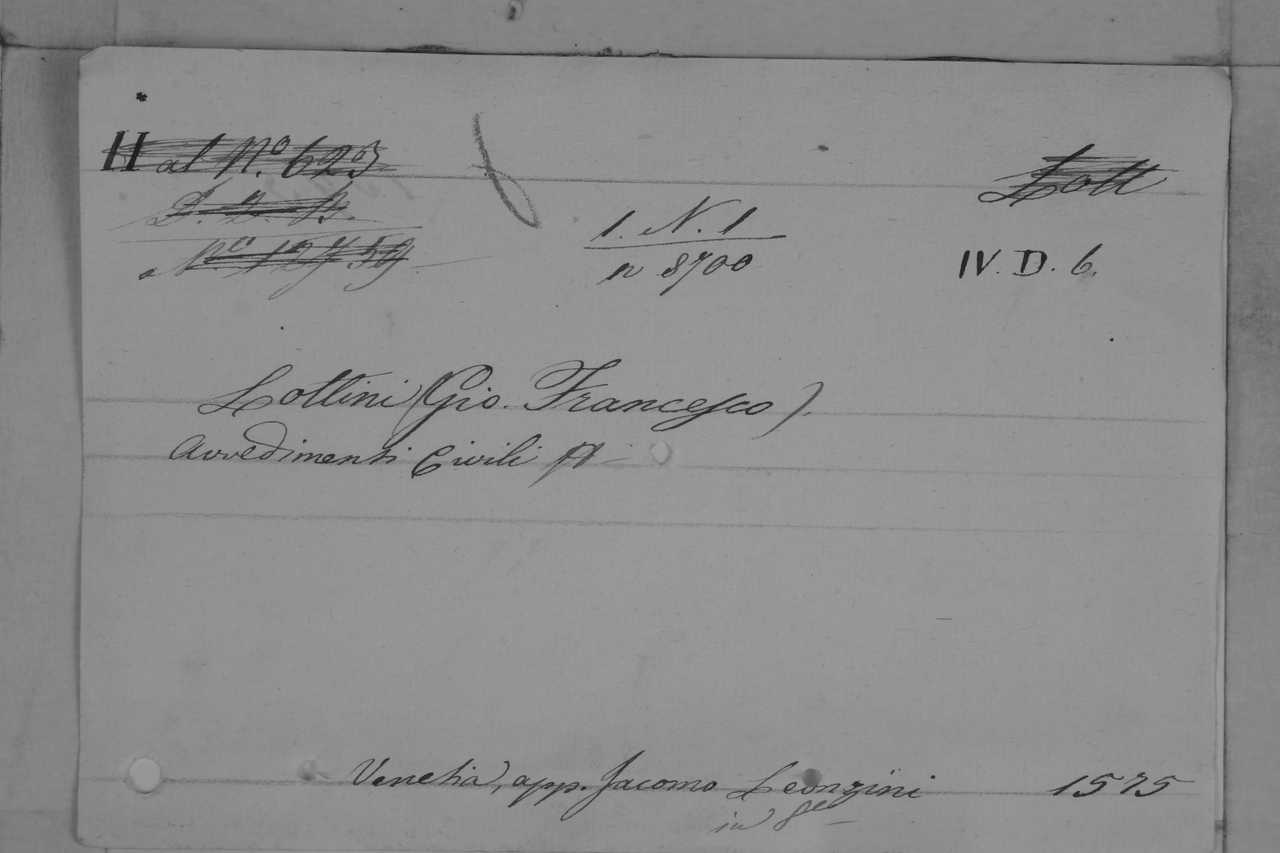 H al N.º 623
Lott
N.ro 12759
1. N. 1
n 8700
IV. D. 6.
Lottini (Gio. Francesco).
Avvedimenti Civili
Venetia, app. Jacomo Leonzini 1575
in 8